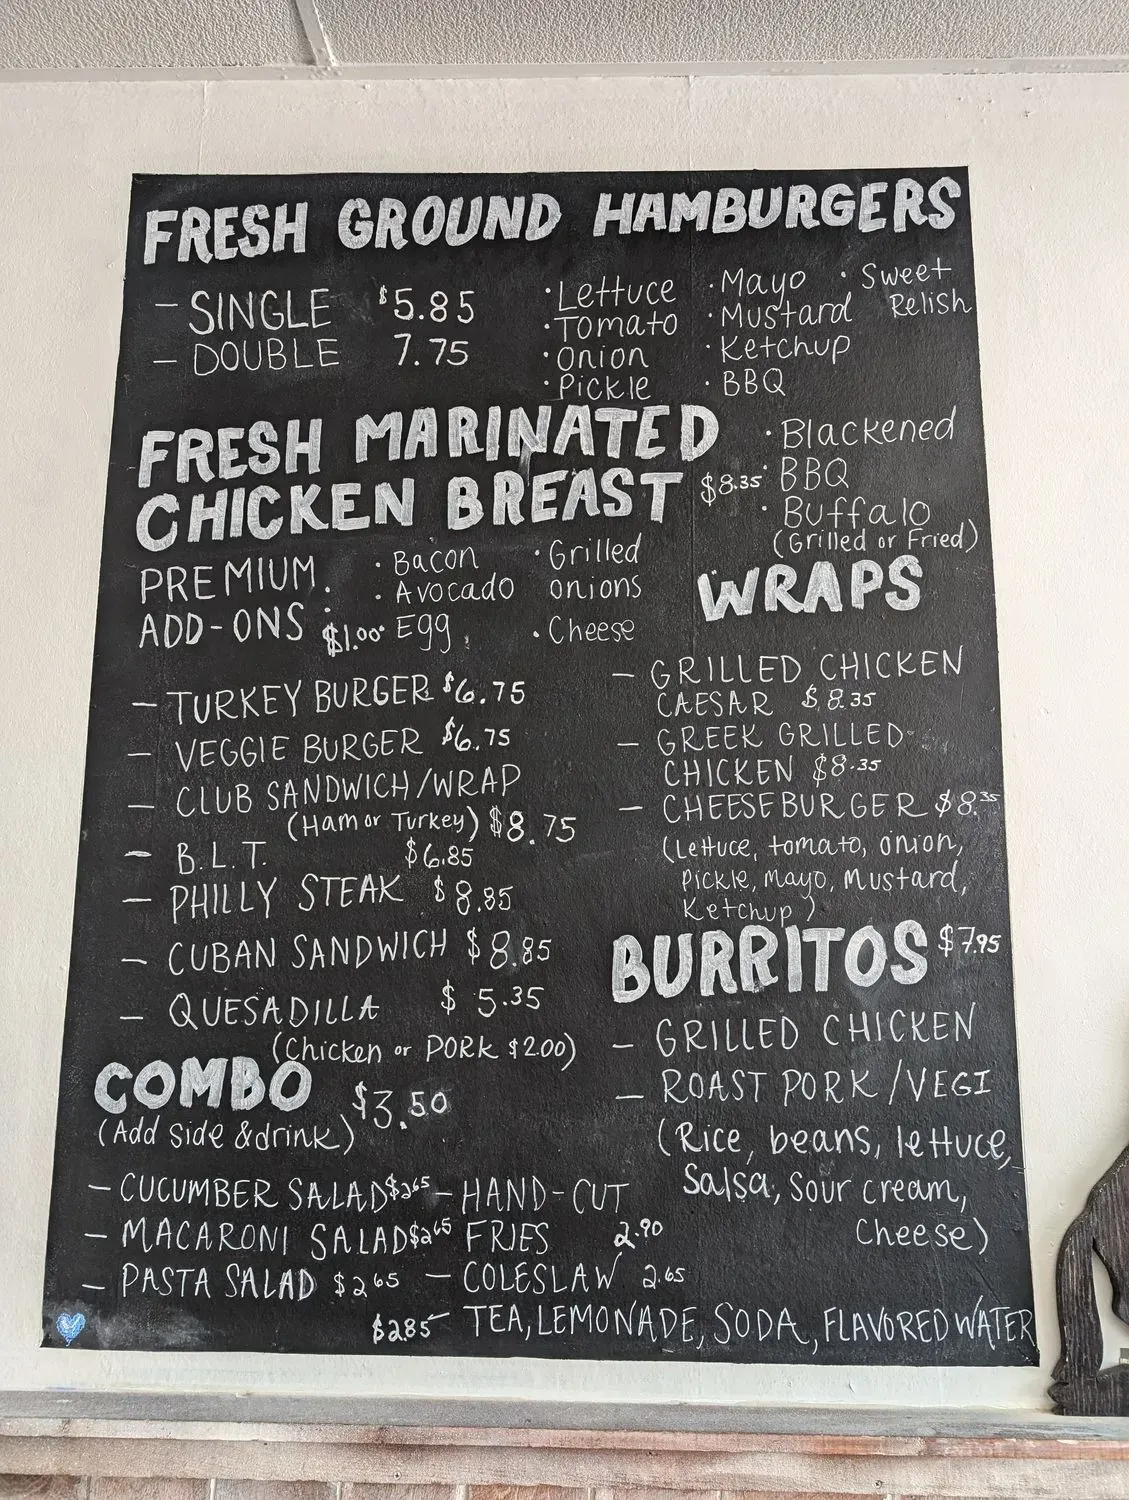 FRESH GROUND HAMBURGERS
- SINGLE $5.85
- DOUBLE 7.75
· Lettuce · Mayo · Sweet Relish
· Tomato · Mustard
· Onion · Ketchup
· Pickle · BBQ
FRESH MARINATED
CHICKEN BREAST $8.35
· Blackened
· BBQ
· Buffalo
(Grilled or Fried)
PREMIUM
ADD-ONS : $1.00
· Bacon · Grilled onions
· Avocado
· Egg · Cheese
- TURKEY BURGER $6.75
- VEGGIE BURGER $6.75
- CLUB SANDWICH/WRAP
(Ham or Turkey) $8.75
- B.L.T. $6.85
- PHILLY STEAK $8.85
- CUBAN SANDWICH $8.85
- QUESADILLA $5.35
(Chicken or PORK $2.00)
WRAPS
- GRILLED CHICKEN
CAESAR $8.35
- GREEK GRILLED
CHICKEN $8.35
- CHEESEBURGER $8.35
(Lettuce, tomato, onion,
Pickle, Mayo, Mustard,
Ketchup)
BURRITOS $7.95
- GRILLED CHICKEN
- ROAST PORK/VEGI
(Rice, beans, lettuce,
Salsa, sour cream,
Cheese)
COMBO $3.50
(Add side & drink)
- CUCUMBER SALAD $2.65
- MACARONI SALAD $2.65
- PASTA SALAD $2.65
- HAND-CUT
FRIES 2.90
- COLESLAW 2.65
$2.85 - TEA, LEMONADE, SODA, FLAVORED WATER